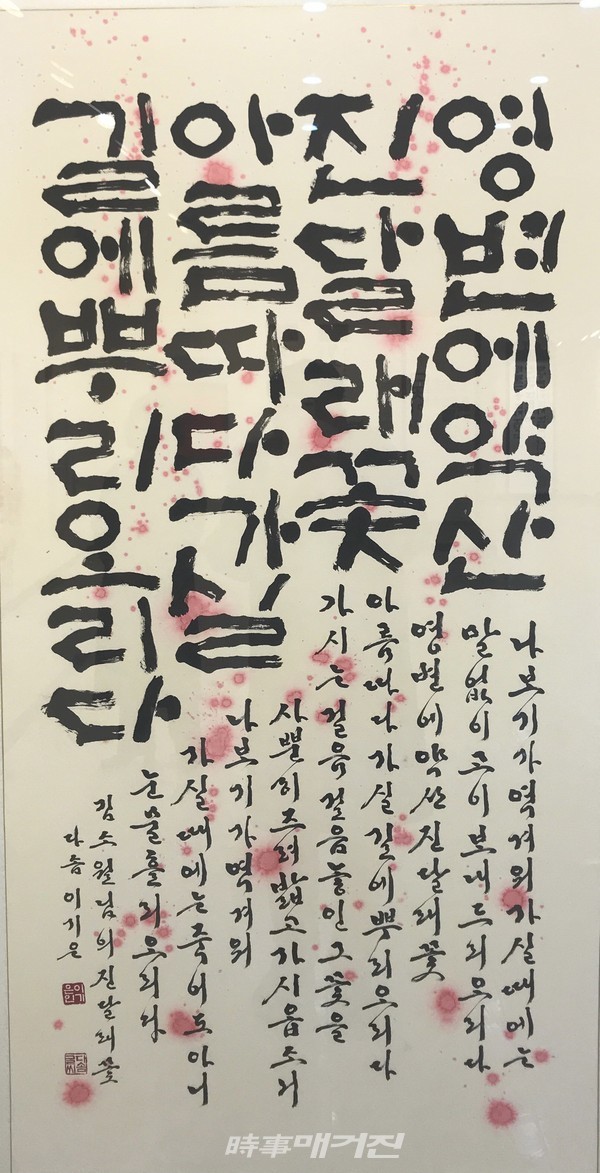 영변에약산
진달래꽃
아름따다가실
길에뿌리오리다
나보기가역겨워가실때에는
말없이고이보내드리오리다
영변에약산진달래꽃
아름따다가실길에뿌리오리다
가시는걸음걸음놓인그꽃을
사뿐히즈려밟고가시옵소서
나보기가역겨워
가실때에는죽어도아니
눈물흘리오리다
김소월님의진달래꽃
다솜이기은
이기은인
時事매거진